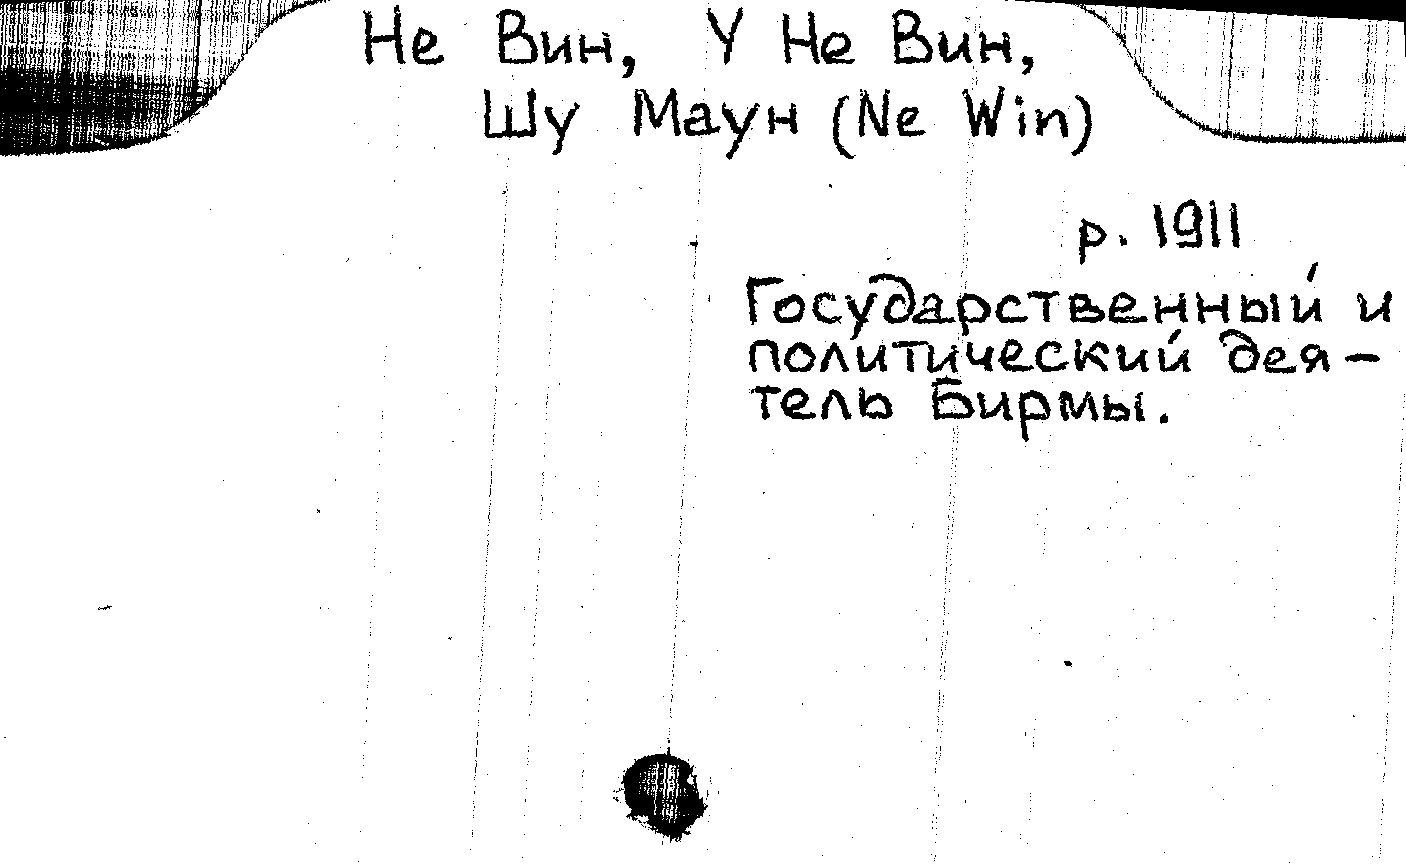 Не Вин, У Не Вин,
Шу Маун (Ne Win)
р. 1911
Государственный и
политический дея-
тель Бирмы.